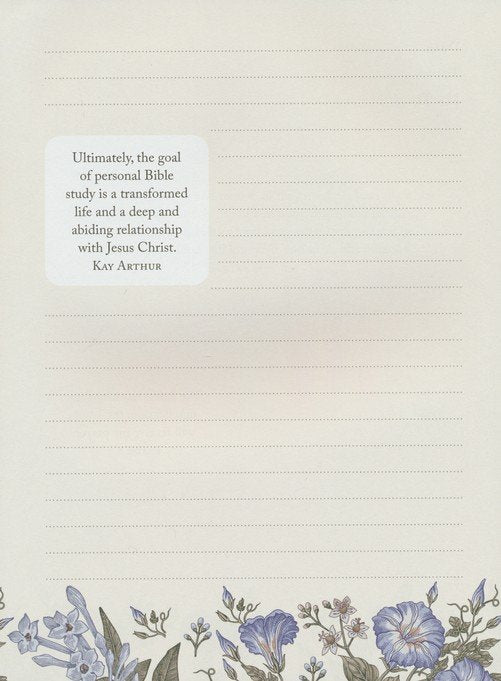 Ultimately, the goal
of personal Bible
study is a transformed
life and a deep and
abiding relationship
with Jesus Christ.
Kay Arthur